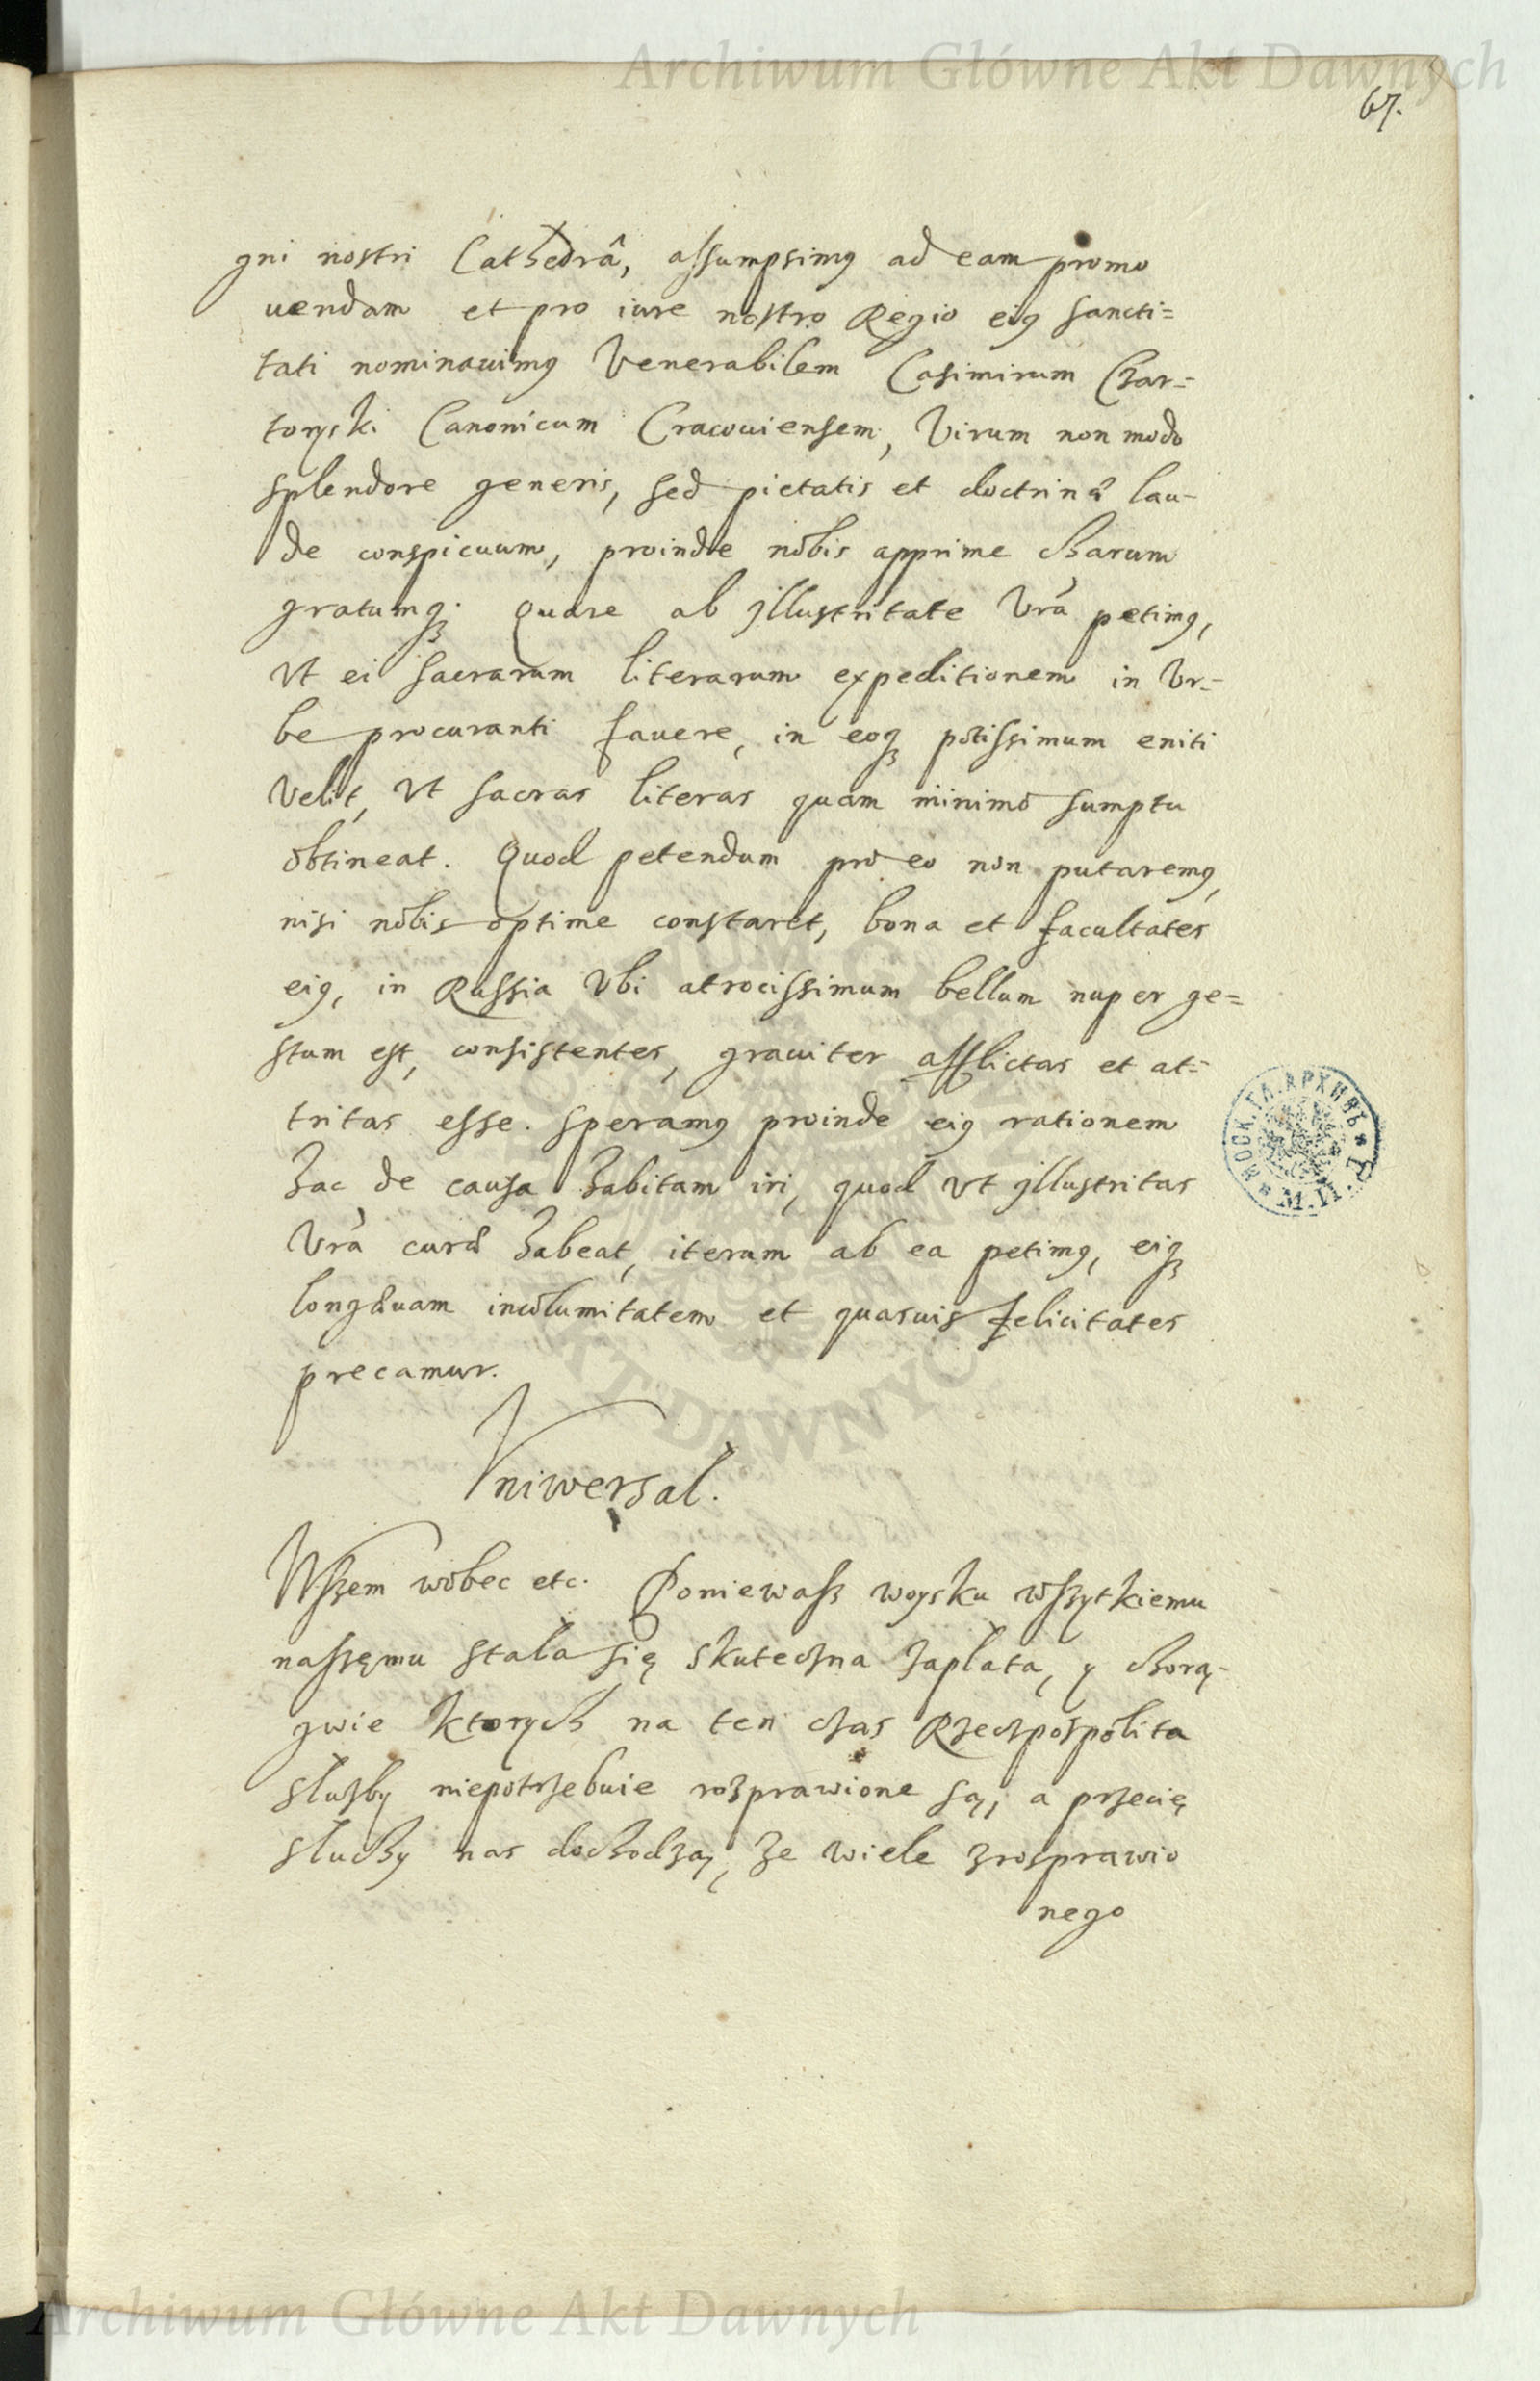 Archiwum Główne Akt Dawnych
67.
gni nostri Cathedrâ, assumpsimꝰ ad eam promo
uendam et pro iure nostro Regio eiꝰ sancti=
tati nominauimꝰ Venerabilem Casimirum Czar=
toryski Canonicum Cracouiensem, Virum non modo
splendore generis, sed pietatis et doctrinæ lau-
de conspicuum, proinde nobis apprime charum
gratumqꝫ. Quare ab Illustritate Vrã petimꝰ,
Vt ei sacrarum literarum expeditionem in Vr=
be procuranti fauere, in eoqꝫ potissimum eniti
Velit, Vt sacras literas quam minimo sumptu
obtineat. Quod petendum pro eo non putaremꝰ,
nisi nobis optime constaret, bona et facultates
eiꝰ, in Russia Vbi atrocissimum bellum nuper ge=
stum est, consistentes, grauiter afflictas et at=
tritas esse. Speramꝰ proinde eiꝰ rationem
hac de causa habitam iri, quod Vt Illustritas
Vrã curæ habeat, iterum ab ea petimꝰ, eiqꝫ
longæuam incolumitatem et quasuis felicitates
precamur.
Vniwersal.
Wszem wobec etc. Poniewasz woysku wszytkiemu
naszęmu stała się skuteczna zapłata, y chorą-
gwie ktorych na ten czas Rzeczpospolita
służby niepotrzebuie rozprawione są, a przecię
słuchy nas dochodzą, że wiele zrosprawio
nego
МОСК. ГЛ. АРХИВЪ
М. И. Д.
ARCHIWUM GŁÓWNE AKT DAWNYCH
Archiwum Główne Akt Dawnych